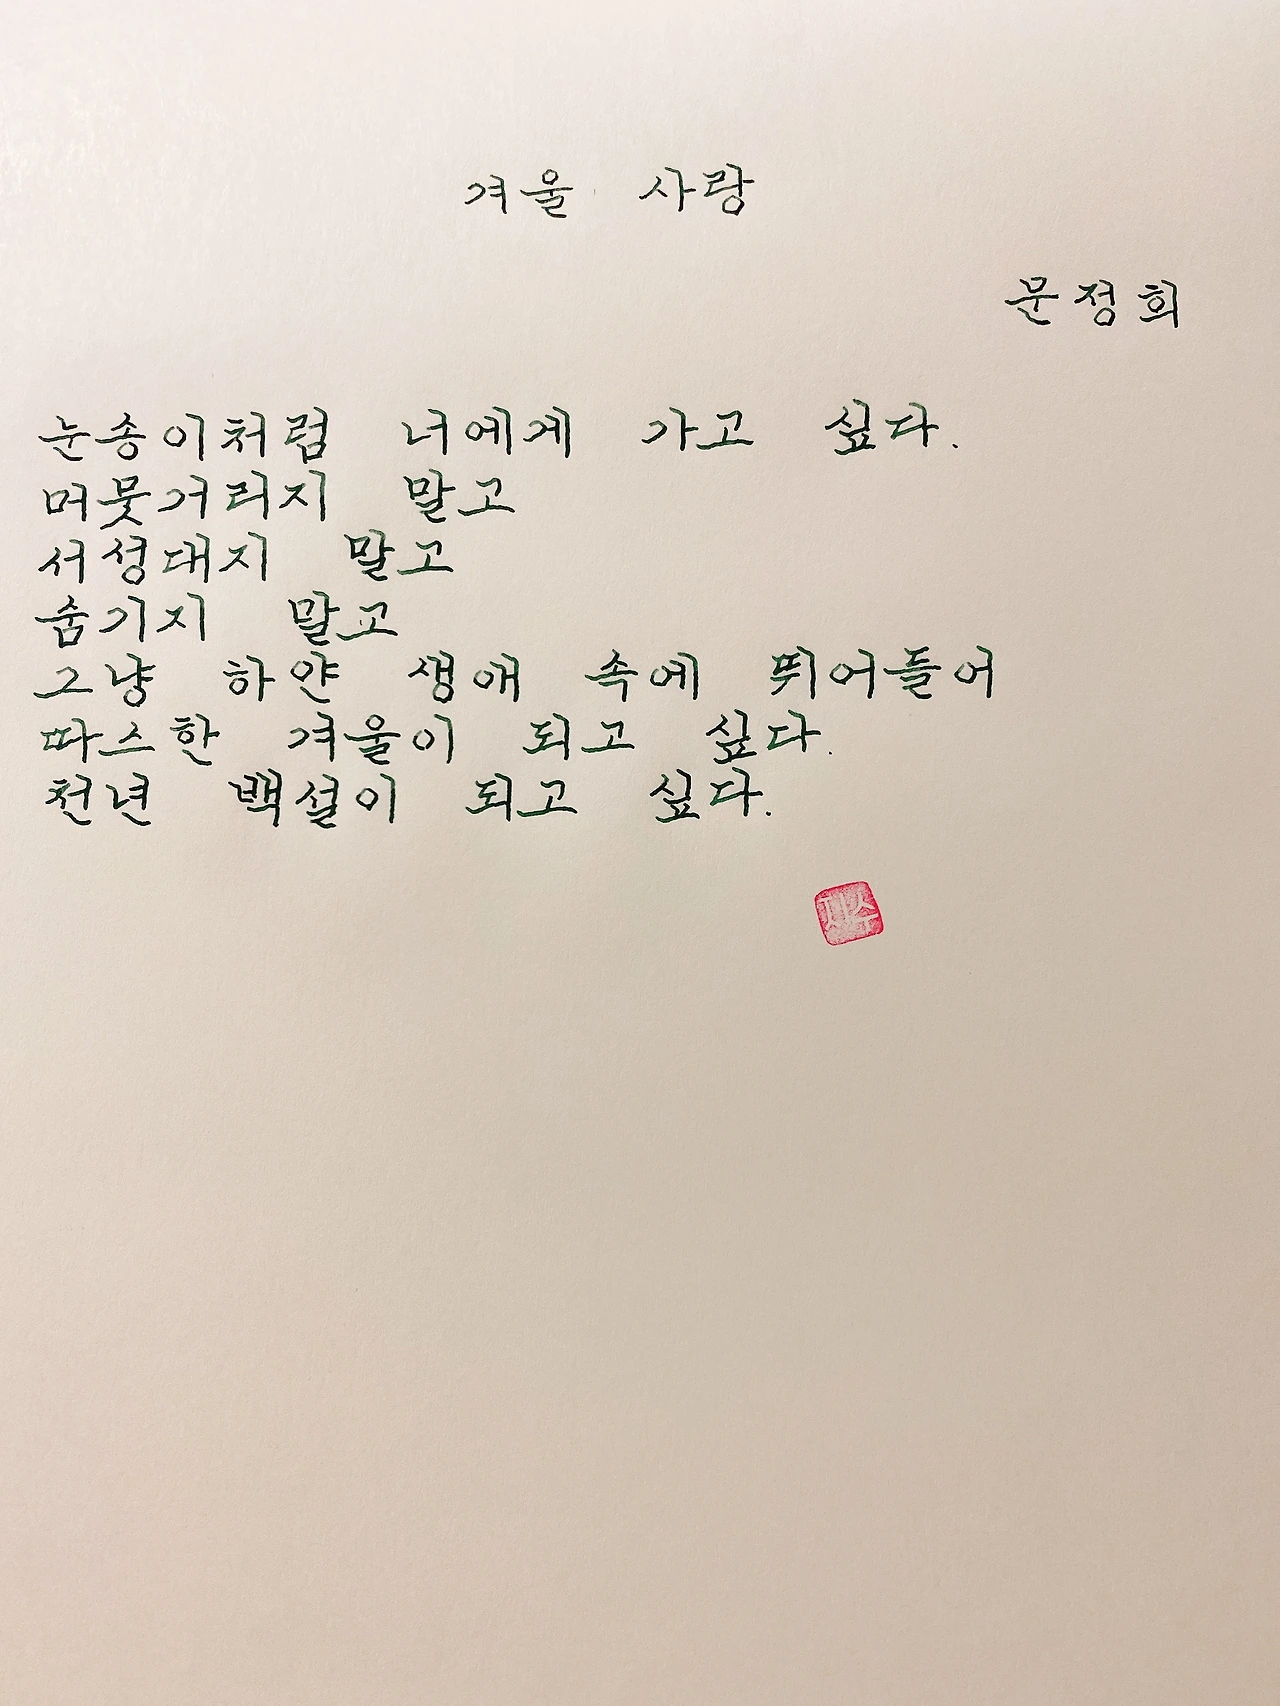 겨울 사랑
문정희
눈송이처럼 너에게 가고 싶다.
머뭇거리지 말고
서성대지 말고
숨기지 말고
그냥 하얀 생애 속에 뛰어들어
따스한 겨울이 되고 싶다.
천년 백설이 되고 싶다.